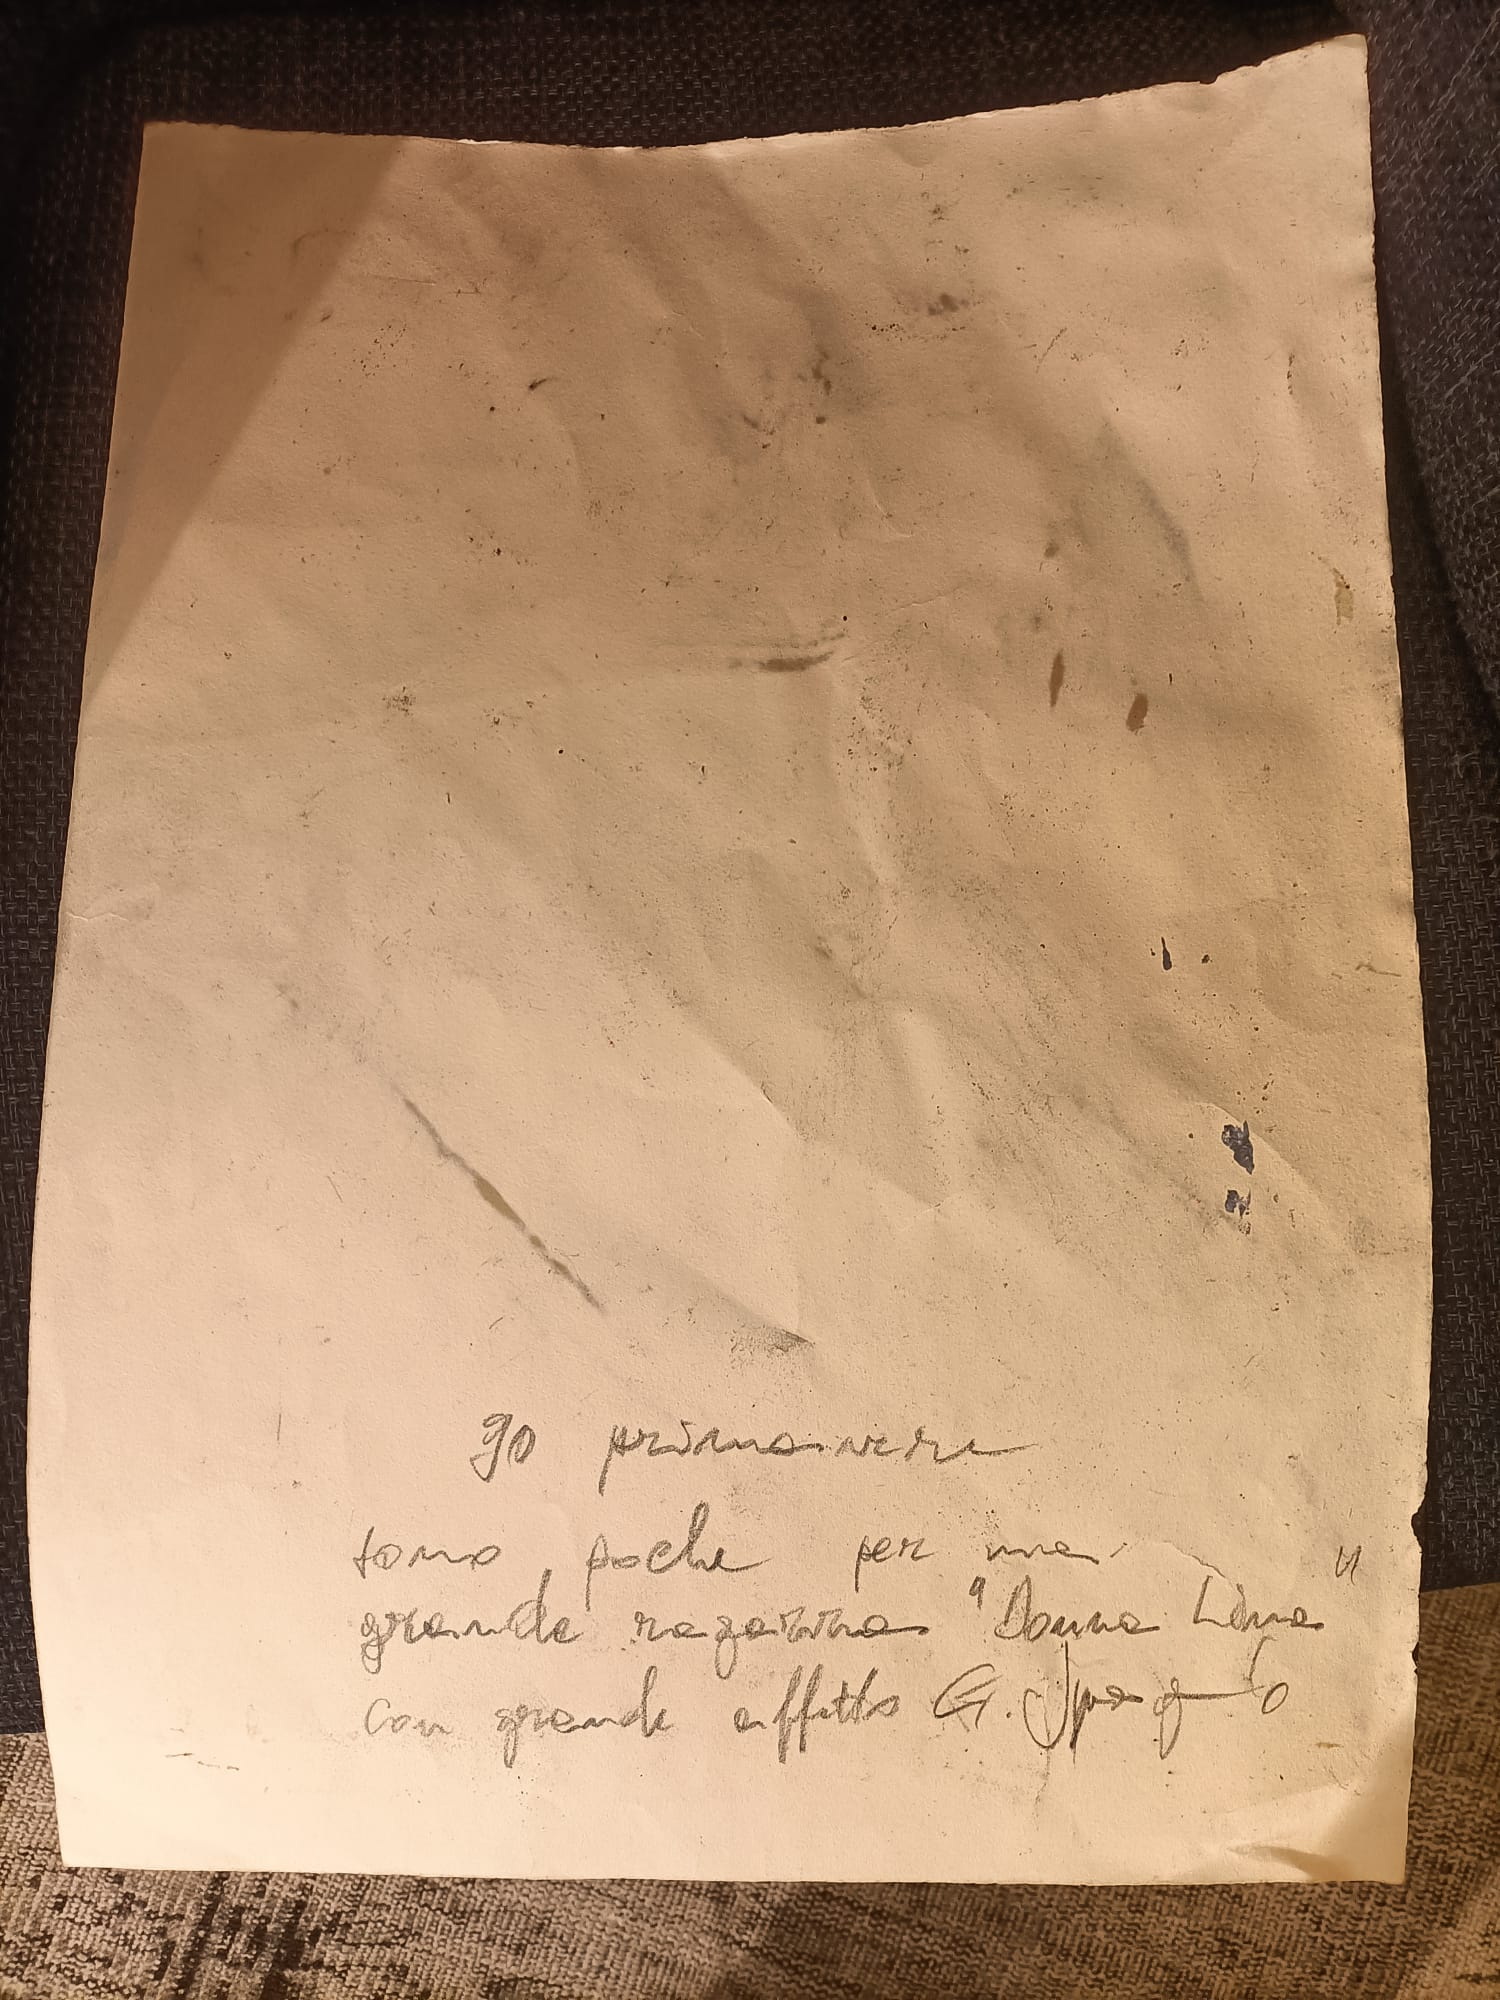 90 primavere
sono poche per una
grande ragazza "Donna Lina"
con grande affetto G.